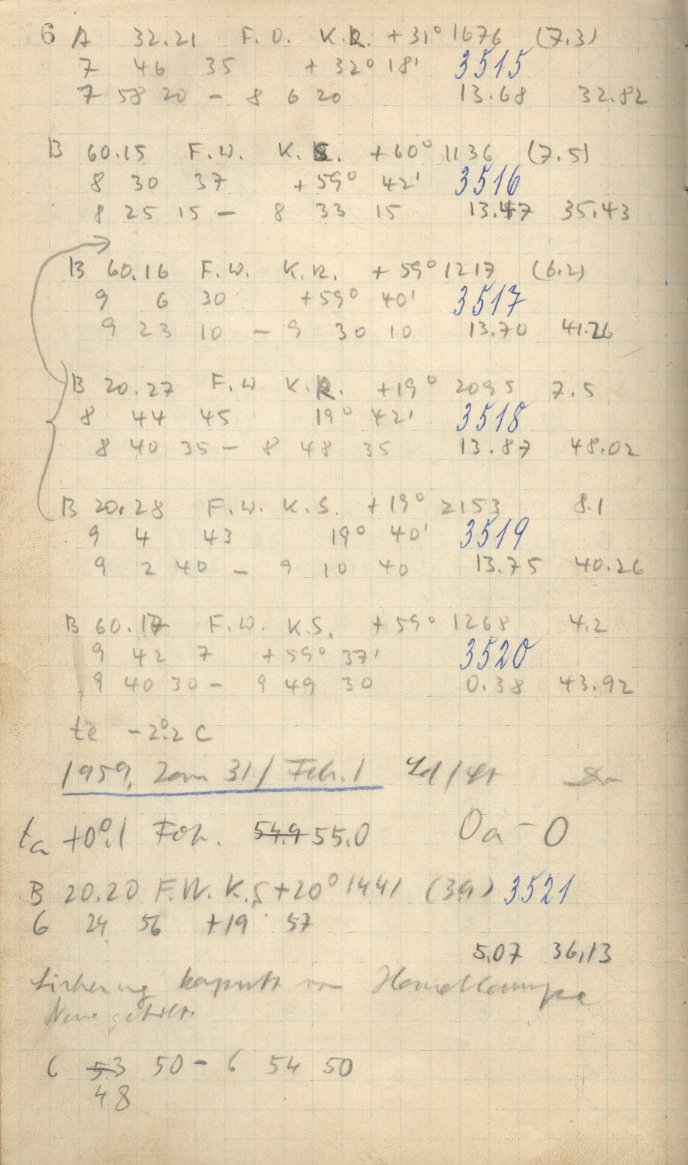 6 A 32.21 F.O. K.R. +31° 1676 (7.3)
7 46 35 +32° 18' 3515
7 58 20 - 8 6 20 13.68 32.82
B 60.15 F.W. K.S. +60° 1136 (7.5)
8 30 37 +59° 42' 3516
8 25 15 - 8 33 15 13.47 35.43
B 60.16 F.W. K.R. +59° 1217 (6.2)
9 6 30 +59° 40' 3517
9 23 10 - 9 30 10 13.70 41.26
B 20.27 F.W K.R. +19° 2095 7.5
8 44 45 19° 42' 3518
8 40 35 - 8 48 35 13.87 48.02
B 20.28 F.W. K.S. +19° 2153 8.1
9 4 43 19° 40' 3519
9 2 40 - 9 10 40 13.75 40.26
B 60.17 F.W. K.S. +59° 1268 4.2
9 42 7 +59° 37' 3520
9 40 30 - 9 49 30 0.38 43.92
te -2°.2 C
1959, Jan 31/ Feb. 1
ta +0°.1 Fok. 54.9 55.0
B 20.20 F.W. K.S +20° 1441 3521
6 24 56 +19 57
5,07 36,13
Sicherung kaputt von
6 53 50 - 6 54 50
48